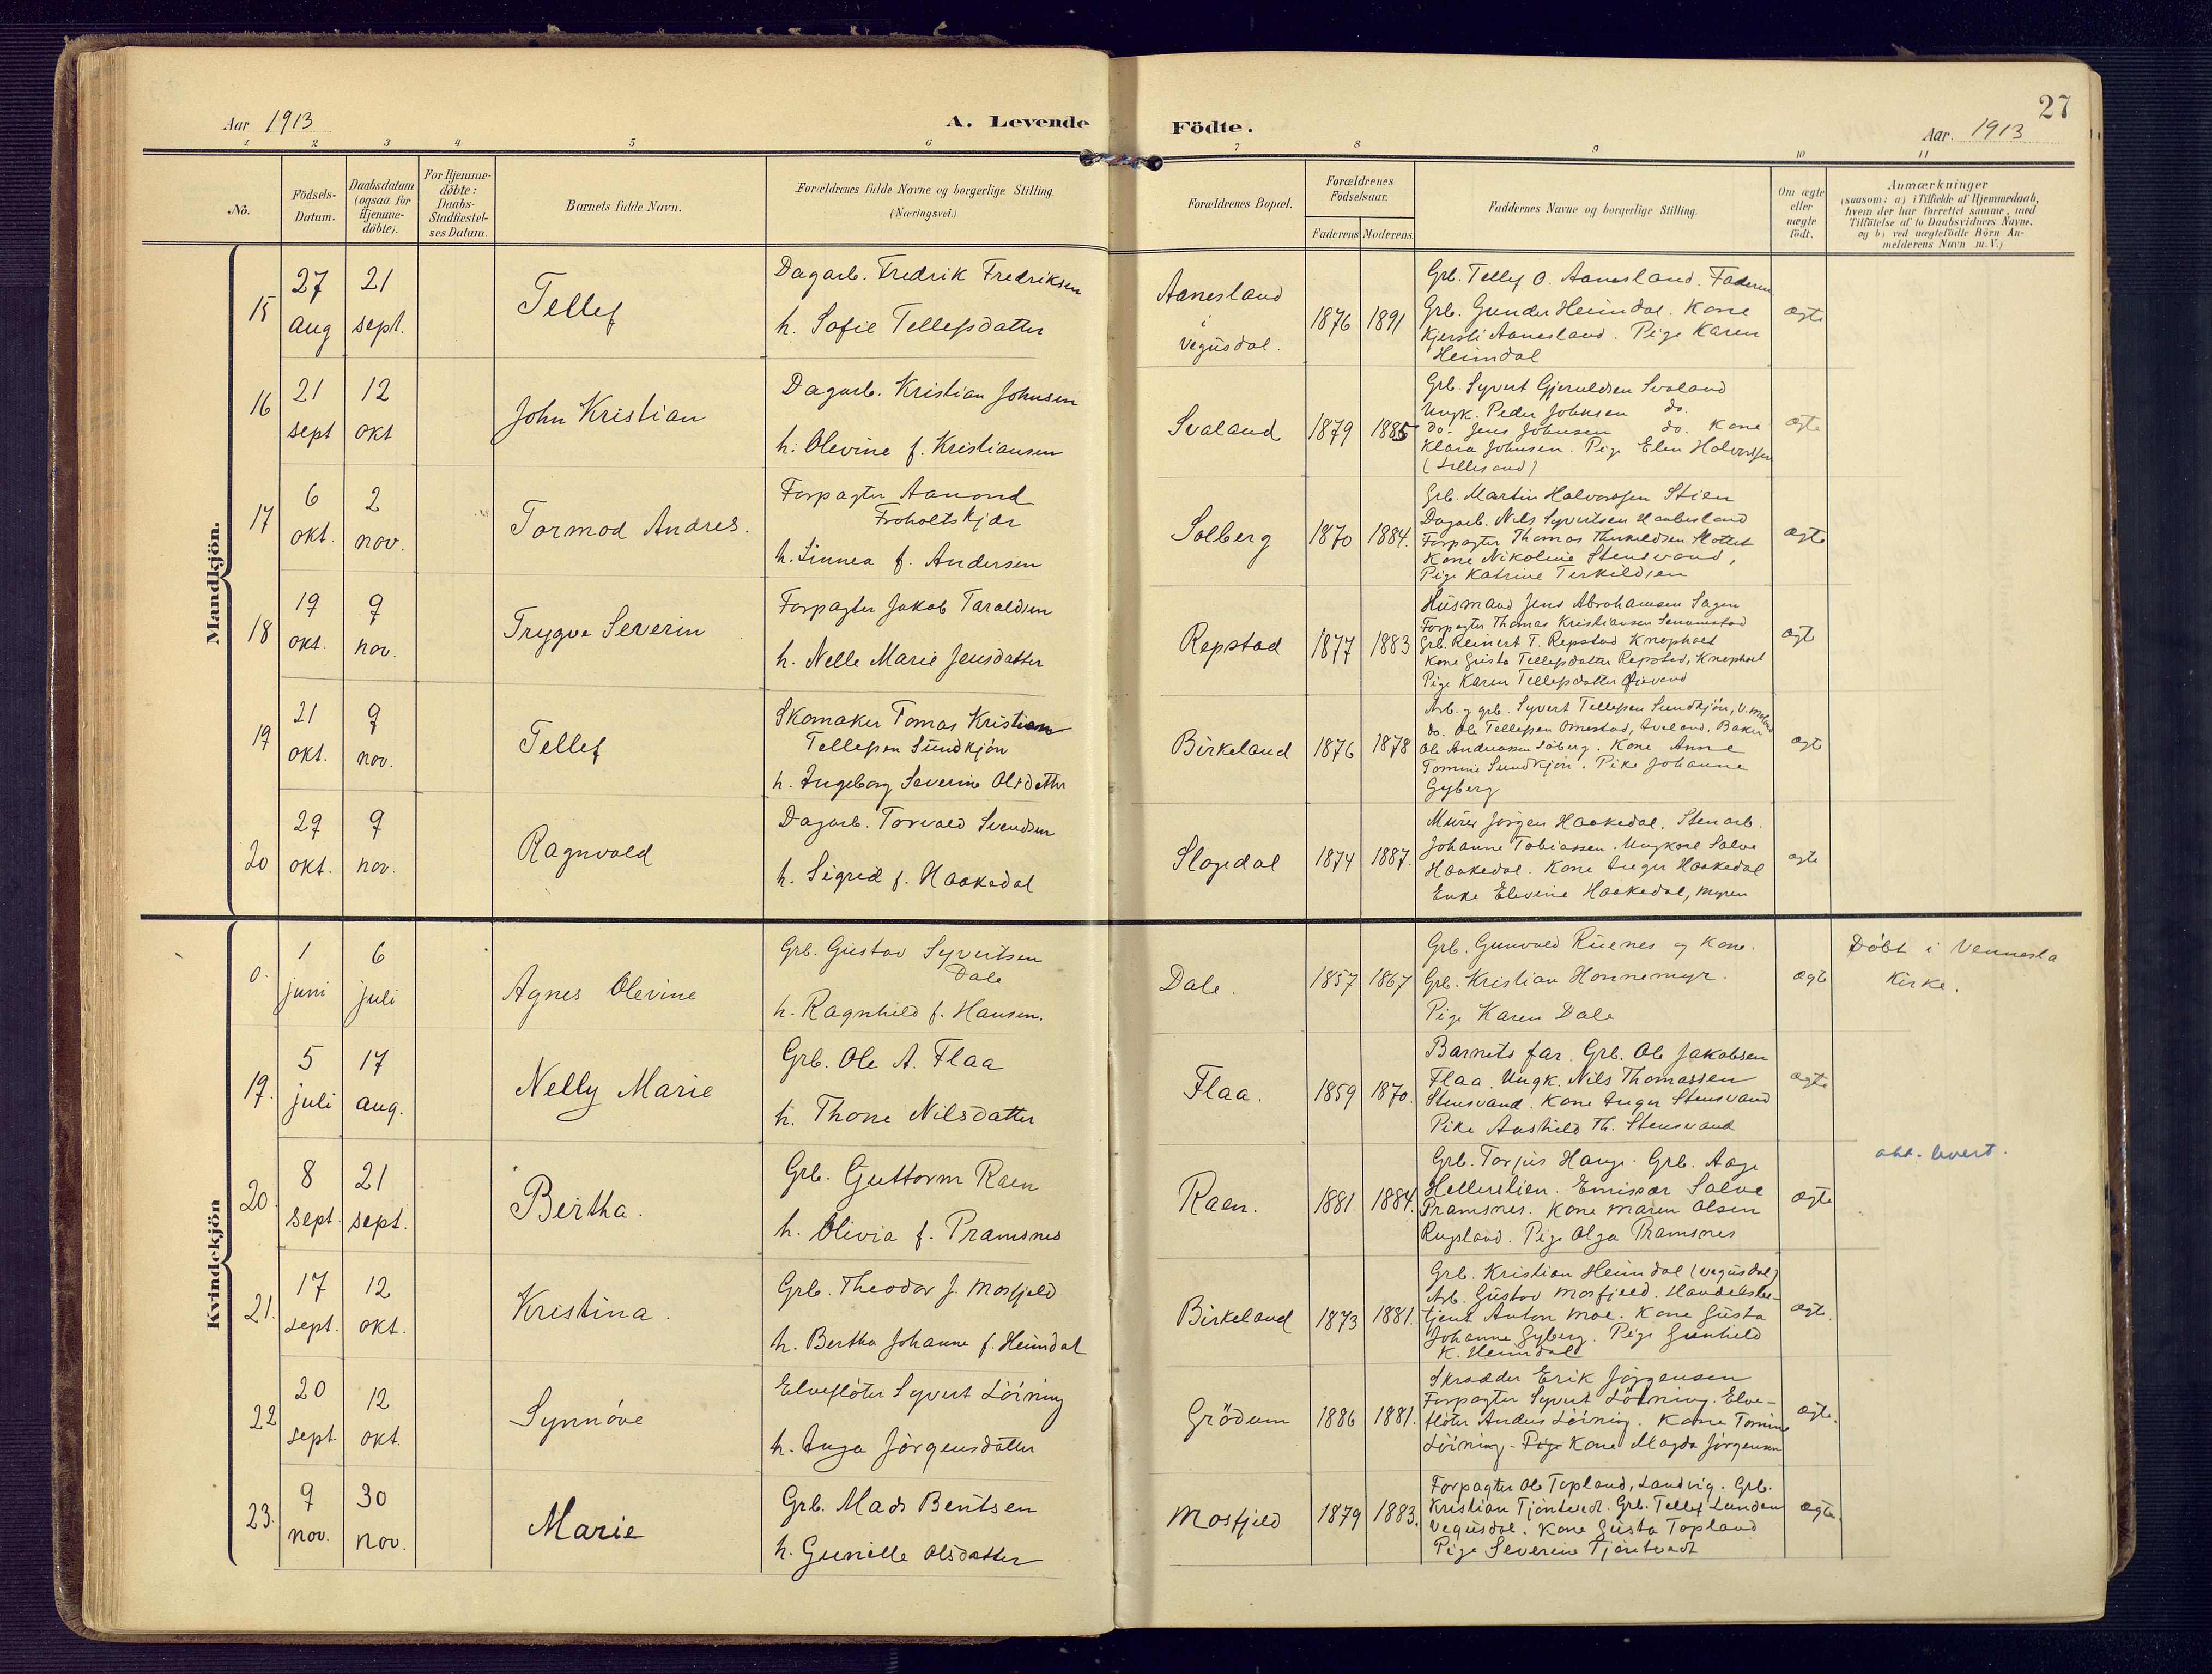 27
Aar 1913
A. Levende Födte.
Aar. 1913
1 2 3 4 5 6 7 8 9 10 11
No.
Födsels-
Datum.
Daabsdatum
(ogsaa for
Hjemme-
döbte).
For Hjemme-
döbte:
Daabs-
Stadfæstel-
ses Datum.
Barnets fulde Navn.
Forældrenes fulde Navne og borgerlige Stilling.
(Næringsvei.)
Forældrenes Bopæl.
Forældrenes
Födselsaar.
Faderens Moderens.
Faddernes Navne og borgerlige Stilling.
Om ægte
eller
uægte
födt.
Anmærkninger
(saasom: a) i Tilfælde af Hjemmedaab,
hvem der har forrettet samme, med
Tilföielse af to Daabsvidners Navne.
og b) ved uægtefödte Börn An-
melderens Navn m. V.)
Mandkjön.
15
27
aug
21
sept.
Tellef
Dagarb. Fredrik Fredriksen
h. Sofie Tellefsdatter
Aanesland
i
Vegusdal.
1876 1891
Grb. Tellef O. Aanesland. Faderen
Grb. Gunder Heimdal. Kone
Kjersti Aanesland. Pige Karen
Heimdal
ægte
16
21
sept
12
okt
John Kristian
Dagarb. Kristian Johnsen
h. Olevine f. Kristiansen
Svaland
1879 1885
Grb. Syvert Gjeruldsen Svaland
Ungk. Peder Johnsen do.
do. Jens Johnsen do. Kone
Klara Johnsen. Pige Elen Halvorsen
(Lillesand)
ægte
17
6
okt.
2
nov.
Tormod Andres.
Forpagter Aanond
Froholtskjær
h. Linnea f. Andersen
Solberg
1870 1884.
Grb. Martin Halvorsen Stien
Dagarb. Nils Syvertsen
Forpagter Thomas
Kone Nikoline Stensvand,
Pige Katrine Terkildsen
ægte
18
19
okt.
9
nov.
Trygve Severin
Forpagter Jakob Taraldsen
h. Nelle Marie Jensdatter
Repstad
1877 1883
Husmand Jens Abrahamsen Sagen
Forpagter Thomas Kristiansen
Grb. Reinert T. Repstad Knapholt
Kone Gusta Tellefsdatter Repstad, Knapholt
Pige Karen Tellefsdatter
ægte
19
21
okt.
9
nov.
Tellef
Skomaker Tomas Kristian
Tellefsen Sundkjön
h. Ingeborg Severine Olsdatter
Birkeland
1876 1878
Arb. og grb. Syvert Tellefsen Sundkjön, V. Moland
do. Ole Tellefsen Omestad, Iveland, Baker
Ole Andreassen Söberg. Kone Anne
Tomine Sundkjön. Pike Johanne
Gyberg
ægte
20
29
okt.
9
nov.
Ragnvald
Dagarb. Torvald Svendsen
h. Sigrid f. Haakedal
Slagedal
1874 1887.
Murer Jörgen Haakedal. Stenarb.
Johanne Tobiassen. Ungkarl Salve
Haakedal. Kone Inger Haakedal
Enke Elevine Haakedal, Myren
ægte
Kvindekjön
0.
1
juni
6
juli
Agnes Olevine
Grb. Gustav Syvertsen
Dale
h. Ragnhild f. Hansen.
Dale.
1857 1867
Grb. Gunvald Ruenes og Kone.
Grb. Kristian Honnemyr.
Pige Karen Dale
ægte
Döbt i Vennesla
Kirke.
19.
5
juli
17
aug.
Nelly Marie
Grb. Ole A. Flaa
h. Thone Nilsdatter
Flaa.
1859 1870.
Barnets far. Grb. Ole Jakobsen
Flaa. Ungk. Nils Thomassen
Stensvand. Kone Inger Stensvand
Pike Aashild Th. Stensvand
ægte
20.
8
sept.
21
sept.
Bertha.
Grb. Guttorm Raen
h. Olivia f. Pramsnes
Raen.
1881 1884.
Grb. Torjus Hauge. Grb. Aage
Hellerslien. Emissær Salve
Pramsnes. Kone Maren Olsen
Rugsland. Pige Olga Pramsnes
ægte
att. levert.
21.
17
sept.
12
okt.
Kristina.
Grb. Theodor J. Mosfjeld
h. Bertha Johanne f. Heimdal
Birkeland
1873 1881.
Grb. Kristian Heimdal (Vegusdal)
Arb. Gustav Mosfjeld. Handelsbe-
tjent Anton Moe. Kone Gusta
Johanne Gyberg. Pige Gunhild
K. Heimdal
ægte.
22
20
sept
12
okt.
Synnöve
Elveflöter Syvert Löining
h. Inga Jörgensdatter
Grödum
1886 1881.
Skrædder Erik Jörgensen
Forpagter Syvert Löining. Elve-
flöter Anders Löining. Kone Tomine
Löining. Pige Kone Magda Jörgensen
ægte.
23.
9
nov.
30
nov.
Marie
Grb. Mads Bentsen
h. Gunille Olsdatter
Mosfjeld
1879 1883.
Forpagter Ole Topland, Landvig. Grb.
Kristian Tjöntvedt. Grb. Tellef Lunden
Vegusdal. Kone Gusta Topland
Pige Severine Tjöntvedt
ægte.